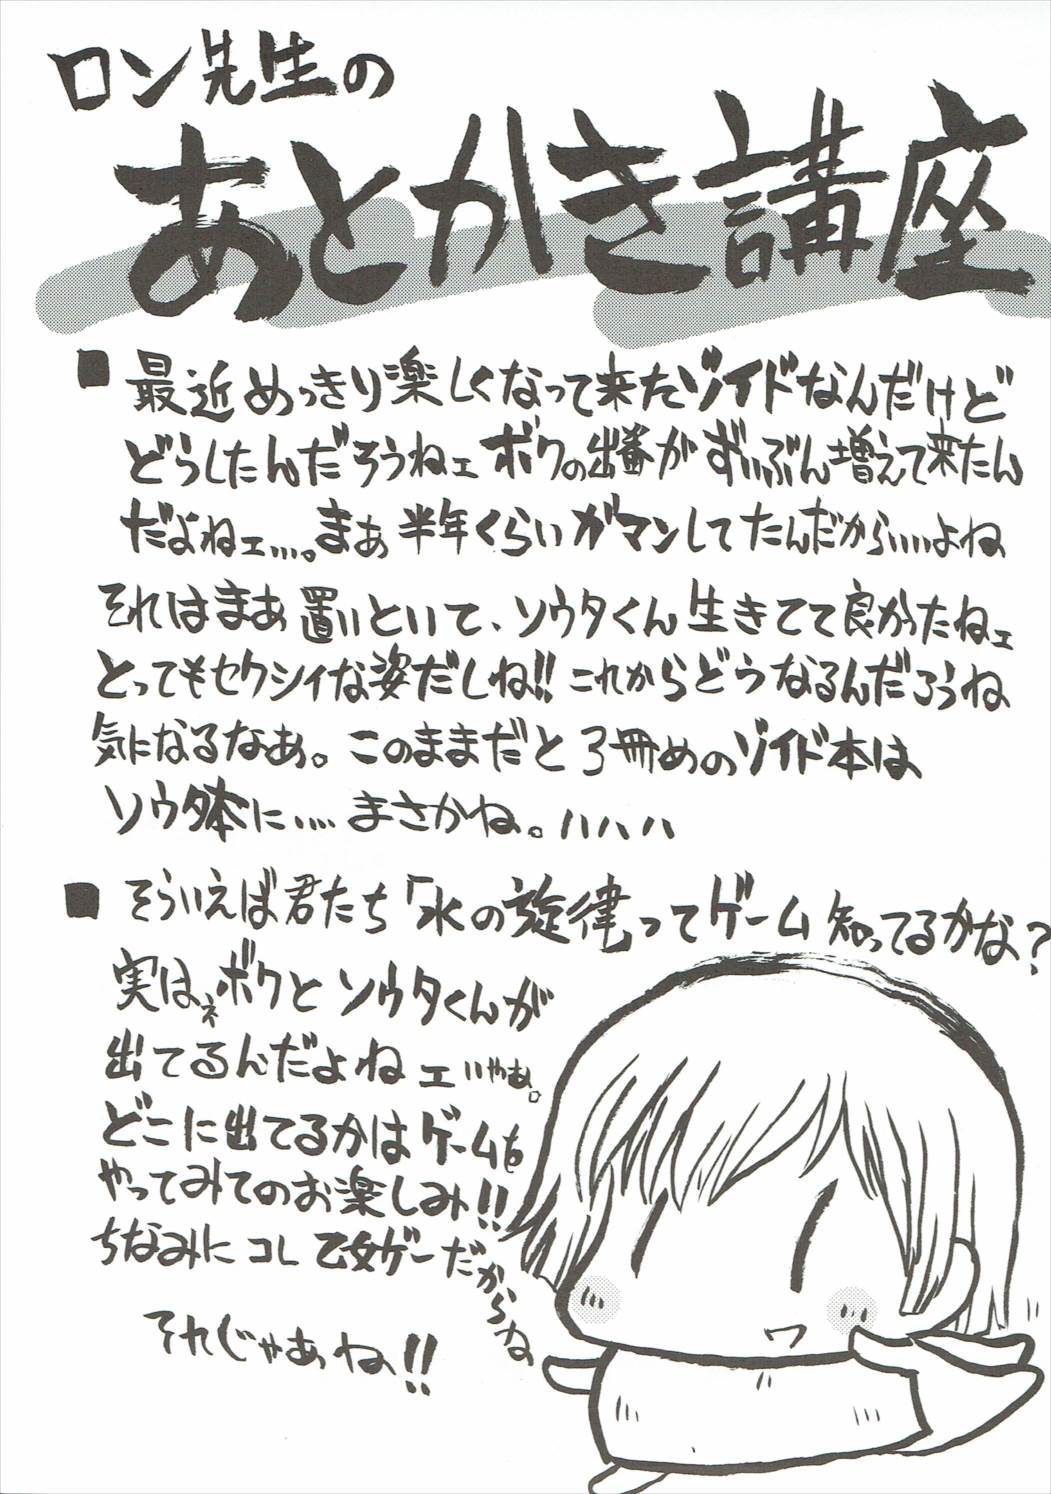 ロン先生の
あとがき講座
■最近めっきり楽しくなって来たゾイドなんだけど
どうしたんだろうねェ ボクの出番がずいぶん増えて来たん
だよねェ…。まぁ半年くらいガマンしてたんだから……よね
それはまあ置いといて、ソウタくん生きてて良かったねェ
とってもセクシィな姿だしね!! これからどうなるんだろうね
気になるなぁ。このままだと3冊めのゾイド本は
ソウタ本に…… まさかね。ハハハハ
■そういえば君たち「水の旋律ってゲーム知ってるかな?
実はネボクとソウタくんが
出てるんだよねェいやぁ。
どこに出てるかはゲームを
やってみてのお楽しみ!!
ちなみにコレ乙女ゲーだからね
それじゃあね!!